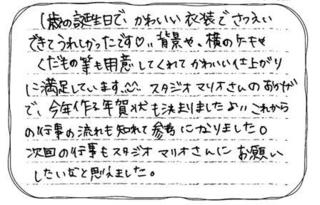 1歳の誕生日で かわいい衣装でさつえい
できてうれしかったです♡!! 背景や、横のケーキや
くだもの等も用意してくれてかわいい仕上がり
に満足しています。 スタジオマリオさんのおかげ
で、今年作る年賀状も決まりましたよ!! これから
の行事の流れも知れて参考になりました。
次回の行事もスタジオマリオさんにお願い
したいなと思えました。